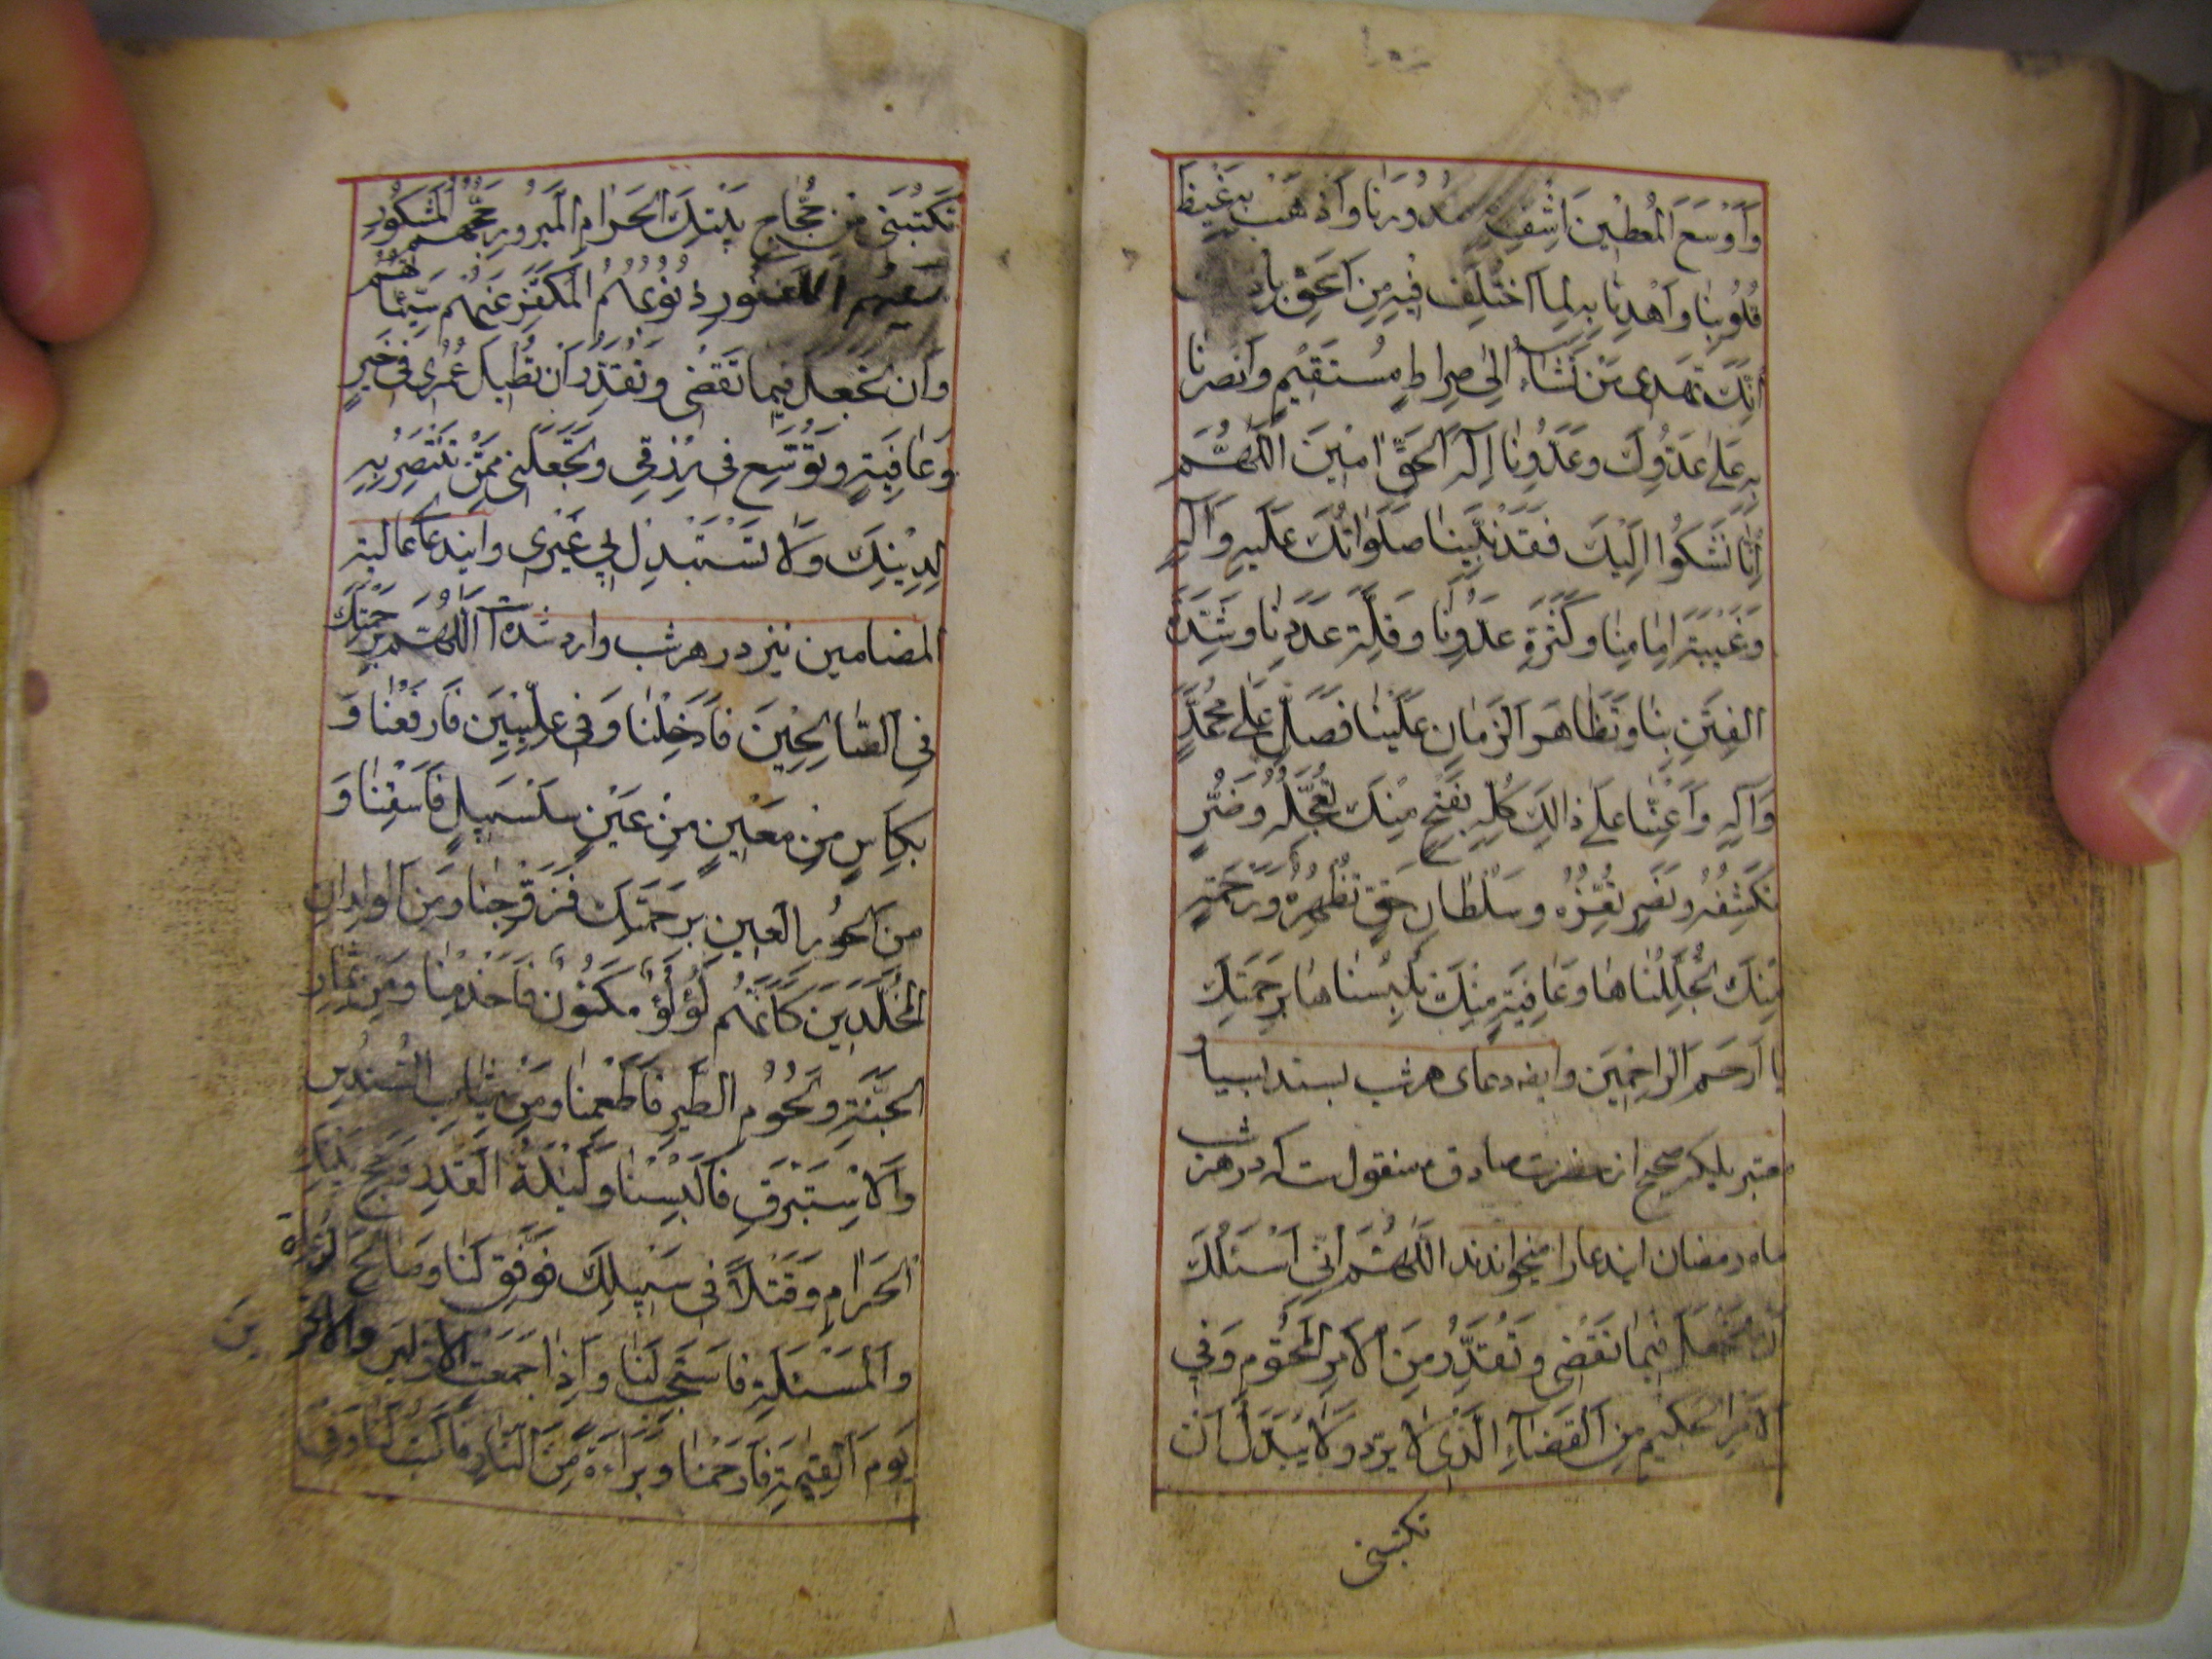 وَاَوْسَعَ الْمُعْطِينَ اَشْفِ بِهِ صُدُورَنَا وَاَذْهِبْ بِهِ غَيْظَ
قُلُوبِنَا وَاهْدِنَا بِهِ لِمَا اخْتُلِفَ فِيهِ مِنَ الْحَقِّ بِاِذْنِكَ
اِنَّكَ تَهْدِي مَنْ تَشَاءُ اِلَى صِرَاطٍ مُسْتَقِيمٍ وَانْصُرْنَا
بِهِ عَلَى عَدُوِّكَ وَعَدُوِّنَا اِلٰهَ الْحَقِّ اٰمِينَ اَللّٰهُمَّ
اِنَّا نَشْكُوا اِلَيْكَ فَقْدَ نَبِيِّنَا صَلَوَاتُكَ عَلَيْهِ وَآلِهِ
وَغَيْبَةَ اِمَامِنَا وَكَثْرَةَ عَدُوِّنَا وَقِلَّةَ عَدَدِنَا وَشِدَّةَ
الْفِتَنِ بِنَا وَتَظَاهُرَ الزَّمَانِ عَلَيْنَا فَصَلِّ عَلَى مُحَمَّدٍ
وَآلِهِ وَاَعِنَّا عَلَى ذٰلِكَ كُلِّهِ بِفَتْحٍ مِنْكَ تُعَجِّلُهُ وَضُرٍّ
تَكْشِفُهُ وَنَصْرٍ تُعِزُّهُ وَسُلْطَانِ حَقٍّ تُظْهِرُهُ وَرَحْمَةٍ
مِنْكَ تُجَلِّلُنَاهَا وَعَافِيَةٍ مِنْكَ تُلْبِسُنَاهَا بِرَحْمَتِكَ
يَا اَرْحَمَ الرَّاحِمِينَ وايضه دعاى هر شب بسند بسيار
معتبر بلكه صحيح از حضرت صادق منقولست كه در هر شب
ماه رمضان ايندعا را ميخواندند اَللّٰهُمَّ اِنِّي اَسْئَلُكَ
اَنْ تَجْعَلَ فِيمَا تَقْضِي وَتُقَدِّرُ مِنَ الْاَمْرِ الْمَحْتُومِ وَفِي
الْاَمْرِ الْحَكِيمِ مِنَ الْقَضَاءِ الَّذِي لَا يُرَدُّ وَلَا يُبَدَّلُ اَنْ
تكتبنى
تَكْتُبَنِي مِنْ حُجَّاجِ بَيْتِكَ الْحَرَامِ الْمَبْرُورِ حَجُّهُمْ الْمَشْكُورِ
سَعْيُهُمْ الْمَغْفُورِ ذُنُوبُهُمُ الْمُكَفَّرِ عَنْهُمْ سَيِّئَاتُهُمْ
وَاَنْ تَجْعَلَ فِيمَا تَقْضِي وَتُقَدِّرُ اَنْ تُطِيلَ عُمْرِي فِي خَيْرٍ
وَعَافِيَةٍ وَتُوَسِّعَ فِي رِزْقِي وَتَجْعَلَنِي مِمَّنْ تَنْتَصِرُ بِهِ
لِدِينِكَ وَلَا تَسْتَبْدِلْ بِي غَيْرِي وايندعا عالية
المضامين نيز در هر شب وارد شده اَللّٰهُمَّ بِرَحْمَتِكَ
فِي الصَّالِحِينَ فَاَدْخِلْنَا وَفِي عِلِّيِّينَ فَارْفَعْنَا وَ
بِكَاْسٍ مِنْ مَعِينٍ مِنْ عَيْنٍ سَلْسَبِيلٍ فَاسْقِنَا وَ
مِنَ الْحُورِ الْعِينِ بِرَحْمَتِكَ فَزَوِّجْنَا وَمِنَ الْوِلْدَانِ
الْمُخَلَّدِينَ كَاَنَّهُمْ لُؤْلُؤٌ مَكْنُونٌ فَاَخْدِمْنَا وَمِنْ ثِمَارِ
الْجَنَّةِ وَلُحُومِ الطَّيْرِ فَاَطْعِمْنَا وَمِنْ ثِيَابِ السُّنْدُسِ
وَالْاِسْتَبْرَقِ فَاَلْبِسْنَا وَلَيْلَةَ الْقَدْرِ وَحَجَّ بَيْتِكَ
الْحَرَامِ وَقَتْلًا فِي سَبِيلِكَ فَوَفِّقْ لَنَا وَصَالِحَ الدُّعَاءِ
وَالْمَسْئَلَةِ فَاسْتَجِبْ لَنَا وَاِذَا جَمَعْتَ الْاَوَّلِينَ وَالْاٰخِرِينَ
يَوْمَ الْقِيٰمَةِ فَارْحَمْنَا وَبَرَاءَةً مِنَ النَّارِ فَاكْتُبْ لَنَا وَفِي